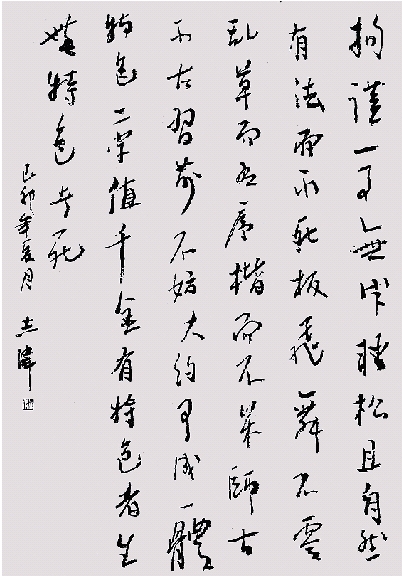 拘謹一事無成轻松且自然
有法而不死板飛舞不雲
乱草而有序楷而不呆師古
不在習不妨大約自成一體
特色二字值千金有特色者生
無特色者死
己卯年夏月志偉